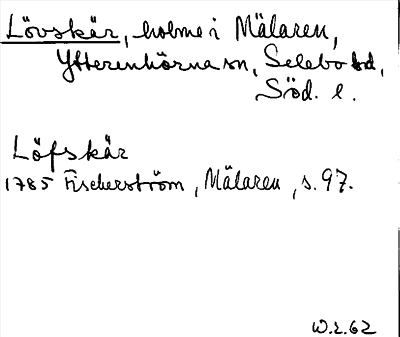 Lövskär, holme i Mälaren,
Ytterenhörna sn, Selebo hd,
Söd. l.
Löfskär
1785 Fischerström, Mälaren, s. 97.
W.Z.62